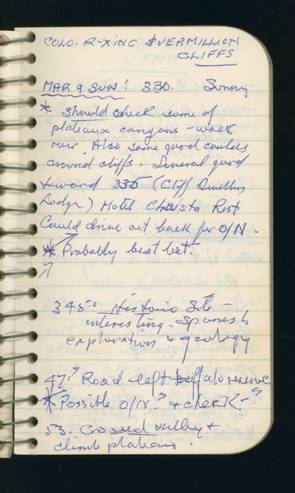 COLO. R-XING & VERMILLION
CLIFFS
MAR 9 SUN: 330. Sunny
* Should check some of
plateaux canyons - walk
over Also some good
around cliffs. Several good
toward 335 (Cliff Dwellers
Lodge) Motel & Rest
Could drive out back for O/N.
* Probably best bet.
345.0 Historic Site -
interesting. Spanish
exploration & geology
47.? Road left buffalo reserve
* Possible O/N? + check -?
53. Crossed valley +
climb plateau.